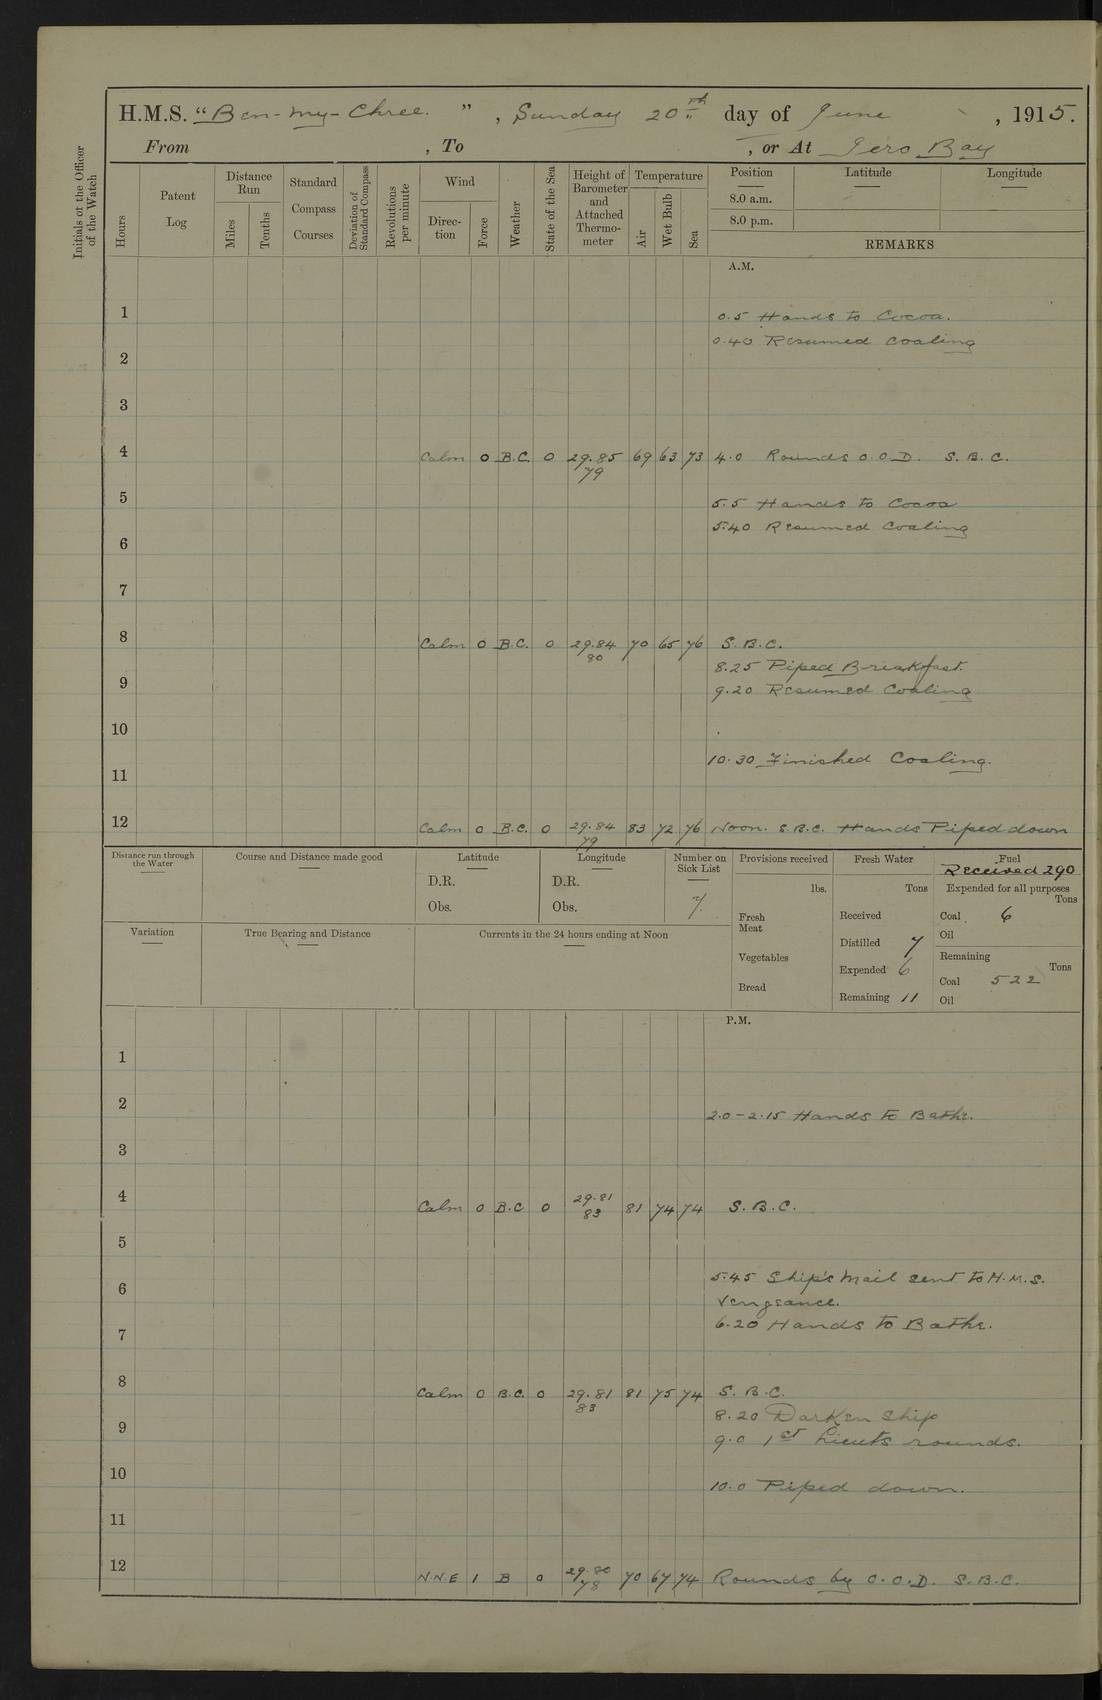 H.M.S. "Ben-my-Chree. ", Sunday 20th day of June, 1915.
From , To , or At Iero Bay
Initials of the Officer of the Watch
Hours
Patent Log
Distance Run
Miles
Tenths
Standard Compass Courses
Deviation of Standard Compass
Revolutions per minute
Wind
Direction
Force
Weather
State of the Sea
Height of Barometer and Attached Thermometer
Temperature
Air
Wet Bulb
Sea
Position
Latitude
Longitude
8.0 a.m.
8.0 p.m.
REMARKS
A.M.
1
0.5 Hands to Cocoa.
0.40 Resumed Coaling
2
3
4 Calm 0 B.C. 0 29.85 69 63 73 4.0 Rounds O.O.D. S.B.C.
79
5
5.5 Hands to Cocoa
5.40 Resumed Coaling
6
7
8 Calm 0 B.C. 0 29.84 70 65 76 S.B.C.
80
8.25 Piped Breakfast.
9
9.20 Resumed Coaling
10
10.30 Finished Coaling.
11
12 Calm 0 B.C. 0 29.84 83 72 76 Noon. S.B.C. Hands Piped down
79
Distance run through the Water
Course and Distance made good
Latitude
D.R.
Obs.
Longitude
D.R.
Obs.
Number on Sick List
7.
Provisions received
lbs.
Fresh Meat
Vegetables
Bread
Fresh Water
Tons
Received
Distilled 7
Expended 6
Remaining 11
Fuel
Received 290
Expended for all purposes
Tons
Coal 6
Oil
Remaining
Tons
Coal 522
Oil
Variation
True Bearing and Distance
Currents in the 24 hours ending at Noon
P.M.
1
2
2.0-2.15 Hands to Bathe.
3
4 Calm 0 B.C 0 29.81 81 74 74 S.B.C.
83
5
5.45 Ship's Mail sent to H.M.S.
6
Vengeance.
6.20 Hands to Bathe.
7
8 Calm 0 B.C. 0 29.81 81 75 74 S.B.C.
83
8.20 Darken Ship
9
9.0 1st Lieuts rounds.
10
10.0 Piped down.
11
12 N.N.E 1 B 0 29.80 70 67 74 Rounds by O.O.D. S.B.C.
78